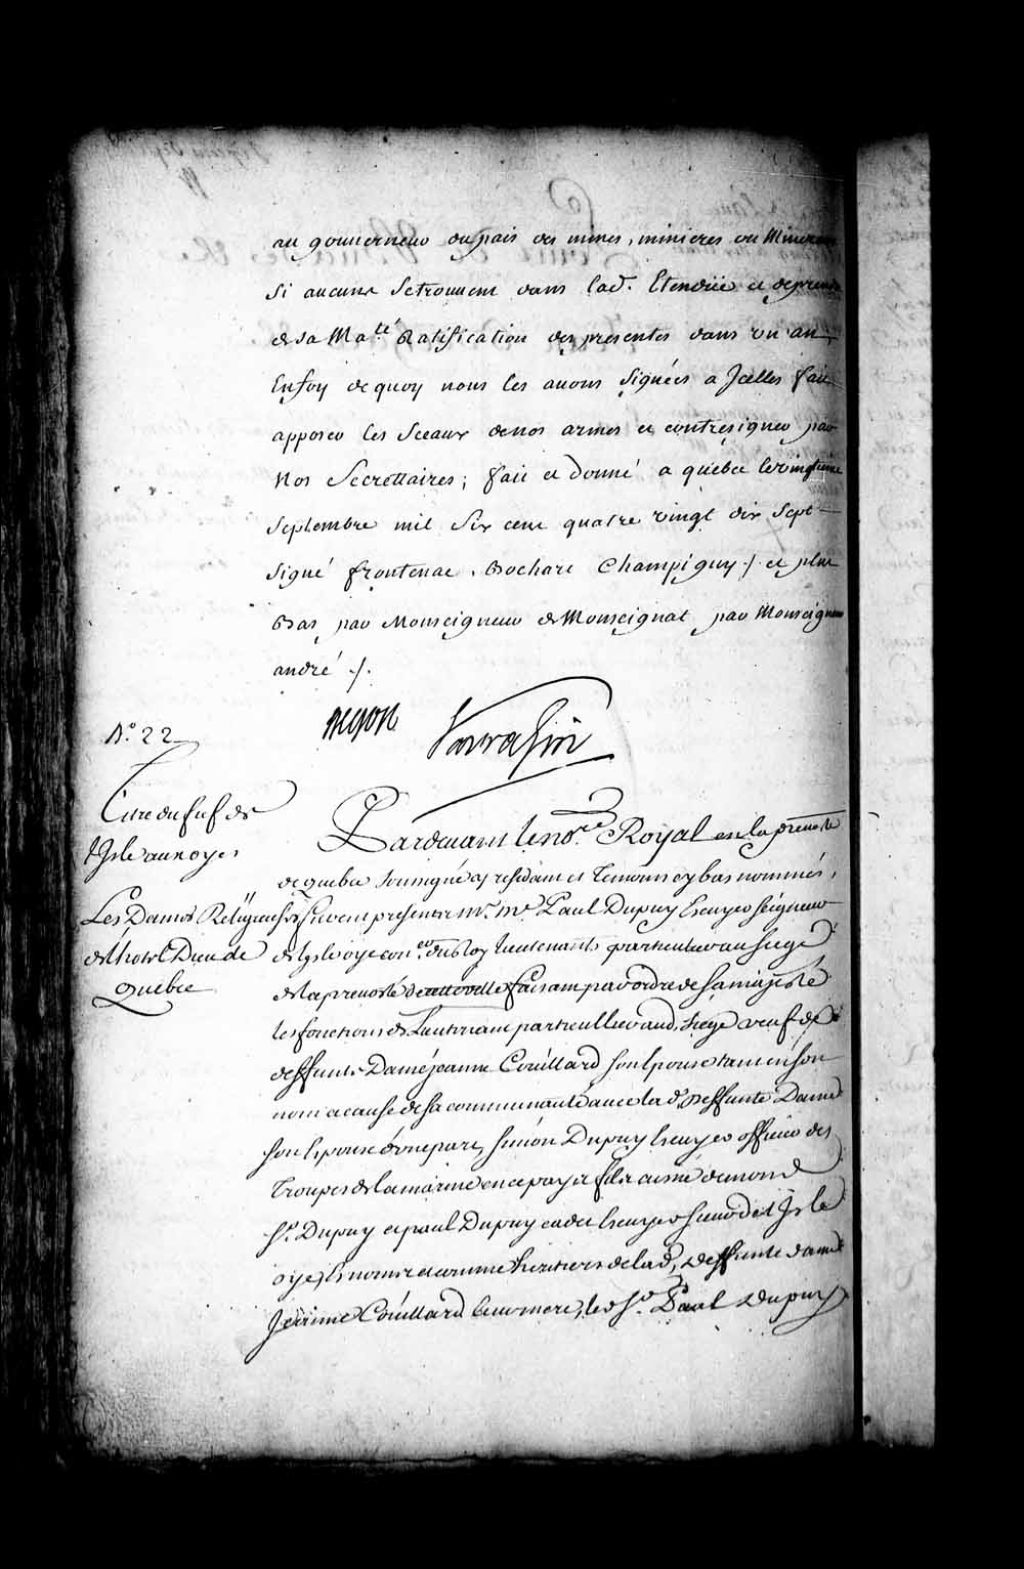 au gouverneur du pais des mines, minieres ou Mineraux
Si aucune Se trouvent dans lad. Etendüe et de prendre
de Sa Ma.té Ratification des presentes dans un an
En foy de quoy nous les avons Signées a Jcelles fait
apposer les Sceaux de nos armes et contresigner par
Nos Secrettaires; fait et donné a quebec le vingtieme
Septembre mil Six cent quatre vingt dix Sept
Signé frontenac. Bochart Champigny ./. et plus
Bas par Monseigneur de Monseignat par Monseigneur
andré ./.
Begon Sarrasin
N.o 22
Titre du fief de
l'Isle aux oyes
Les Dames Religieuses
de l'hotel Dieu de
Quebec
Pardevant le no.re Royal en la prevosté
de quebec Soussigné y residant et Temoins cy bas nommés,
furent presents M.r M.e Paul Dupuy Escuyer Seigneur
de l'Isle oye con.er du Roy lieutenant particulier au Siege
de la prevosté de cette ville faisant par ordre de Sa majesté
les fonctions de Lieutenant particullier aud. Siege veuf de
deffunte Dame jeanne Coüillard Son Epouse tant en Son
nom a cause de la communauté avec lad. Deffunte Dame
Son Epouse d'une part, Simon Dupuy Escuyer officier des
Troupes de la marine en ce pays fils aisné de mond.
S.r Dupuy et paul Dupuy cadet Escuyer Sieur de l'Isle
oye, Es noms et comme heritiers de lad. Deffunte dame
Jeanne Coüillard leur mere, led. S.r Paul Dupuy